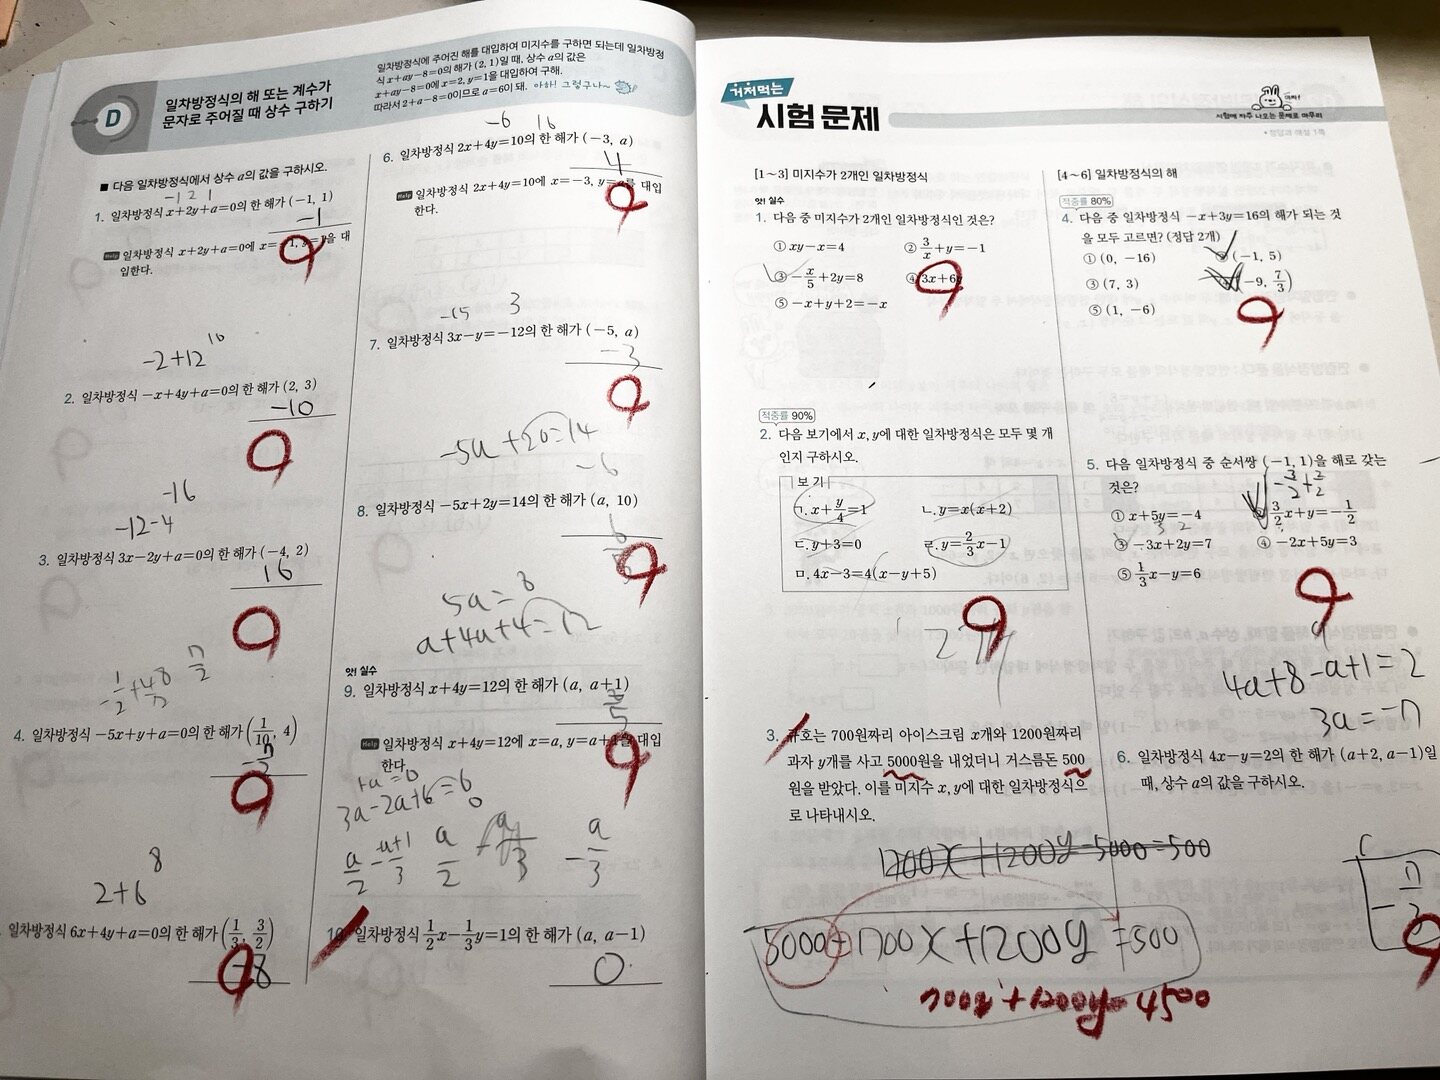 D
일차방정식의 해 또는 계수가
문자로 주어질 때 상수 구하기
일차방정식에 주어진 해를 대입하여 미지수를 구하면 되는데 일차방정
식 x+ay-8=0의 해가 (2, 1)일 때, 상수 a의 값은
x+ay-8=0에 x=2, y=1을 대입하여 구해.
따라서 2+a-8=0이므로 a=6이 돼. 아하! 그렇구나~
■ 다음 일차방정식에서 상수 a의 값을 구하시오.
-1 2 1
1. 일차방정식 x+2y+a=0의 한 해가 (-1, 1)
-1
Help 일차방정식 x+2y+a=0에 x=-1, y=1을 대
입한다.
-2+12 10
2. 일차방정식 -x+4y+a=0의 한 해가 (2, 3)
-10
-16
-12-4
3. 일차방정식 3x-2y+a=0의 한 해가 (-4, 2)
16
4. 일차방정식 -5x+y+a=0의 한 해가 (1/10, 4)
2+6 8
일차방정식 6x+4y+a=0의 한 해가 (1/3, 3/2)
-8
-6 16
6. 일차방정식 2x+4y=10의 한 해가 (-3, a)
4
Help 일차방정식 2x+4y=10에 x=-3, y=a를 대입
한다.
-15 3
7. 일차방정식 3x-y=-12의 한 해가 (-5, a)
-3
-5a+20=14
-6
8. 일차방정식 -5x+2y=14의 한 해가 (a, 10)
5a=8
a+4a+4=12
앗! 실수
9. 일차방정식 x+4y=12의 한 해가 (a, a+1)
Help 일차방정식 x+4y=12에 x=a, y=a+1을 대입
한다.
3a-2a+6=6
a/2 - a+1/3 a/2 - a/3
10. 일차방정식 1/2x-1/3y=1의 한 해가 (a, a-1)
0
거저먹는
시험 문제
시험에 자주 나오는 문제로 마무리
[1~3] 미지수가 2개인 일차방정식
앗! 실수
1. 다음 중 미지수가 2개인 일차방정식인 것은?
① xy-x=4
② 3/x+y=-1
③ -x/5+2y=8
④ 3x+6y
⑤ -x+y+2=-x
적중률 90%
2. 다음 보기에서 x, y에 대한 일차방정식은 모두 몇 개
인지 구하시오.
보기
ㄱ. x+y/4=1
ㄴ. y=x(x+2)
ㄷ. y+3=0
ㄹ. y=2/3x-1
ㅁ. 4x-3=4(x-y+5)
2개
3. 규호는 700원짜리 아이스크림 x개와 1200원짜리
과자 y개를 사고 5000원을 내었더니 거스름돈 500
원을 받았다. 이를 미지수 x, y에 대한 일차방정식으
로 나타내시오.
1200y-5000=500
5000-700x+1200y=500
[4~6] 일차방정식의 해
적중률 80%
4. 다음 중 일차방정식 -x+3y=16의 해가 되는 것
을 모두 고르면? (정답 2개)
① (0, -16)
② (-1, 5)
③ (7, 3)
④ (-9, 7/3)
⑤ (1, -6)
5. 다음 일차방정식 중 순서쌍 (-1, 1)을 해로 갖는
것은?
-3/2+2/2
① x+5y=-4
② 3/2x+y=-1/2
3 2
③ -3x+2y=7
④ -2x+5y=3
⑤ 1/3x-y=6
4a+8-a+1=2
3a=-7
6. 일차방정식 4x-y=2의 한 해가 (a+2, a-1)일
때, 상수 a의 값을 구하시오.